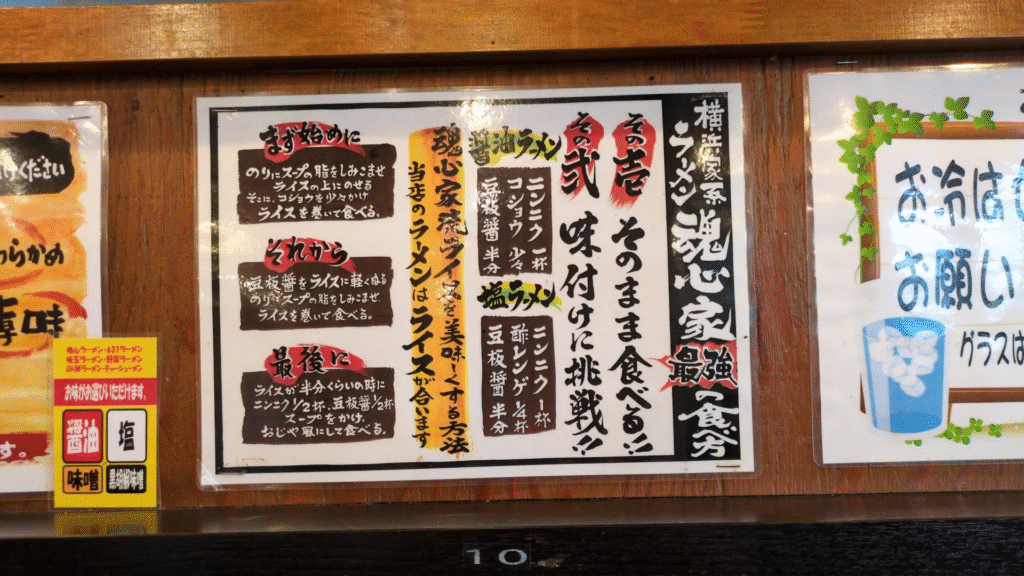 横浜家系
ラーメン魂心家
最強の食べ方
その壱
そのまま食べる!!
その弐
味付けに挑戦!!
醤油ラメン
ニンニク一杯
コショウ 少々
豆板醤 半分
塩ラーメン
ニンニク一杯
酢レンゲ1/4杯
豆板醤 半分
魂心家流ライスを美味しくする方法
当店のラーメンはライスが合います
まず始めに
のりにスープの脂をしみこませ
ライスの上にのせる
そこに、コショウを少々かけ
ライスを巻いて食べる。
それから
豆板醤をライスに軽くぬる
のりにスープの脂をしみこませ
ライスを巻いて食べる。
最後に
ライスが半分くらいの時に
ニンニク1/2杯、豆板醤1/2杯
スープをかけ、
おじや風にして食べる。
ください
わらかめ
味
す。
お味がお選びいただけます。
醤油
塩
味噌
黒胡椒味噌
お冷は
お願い
グラスは
10